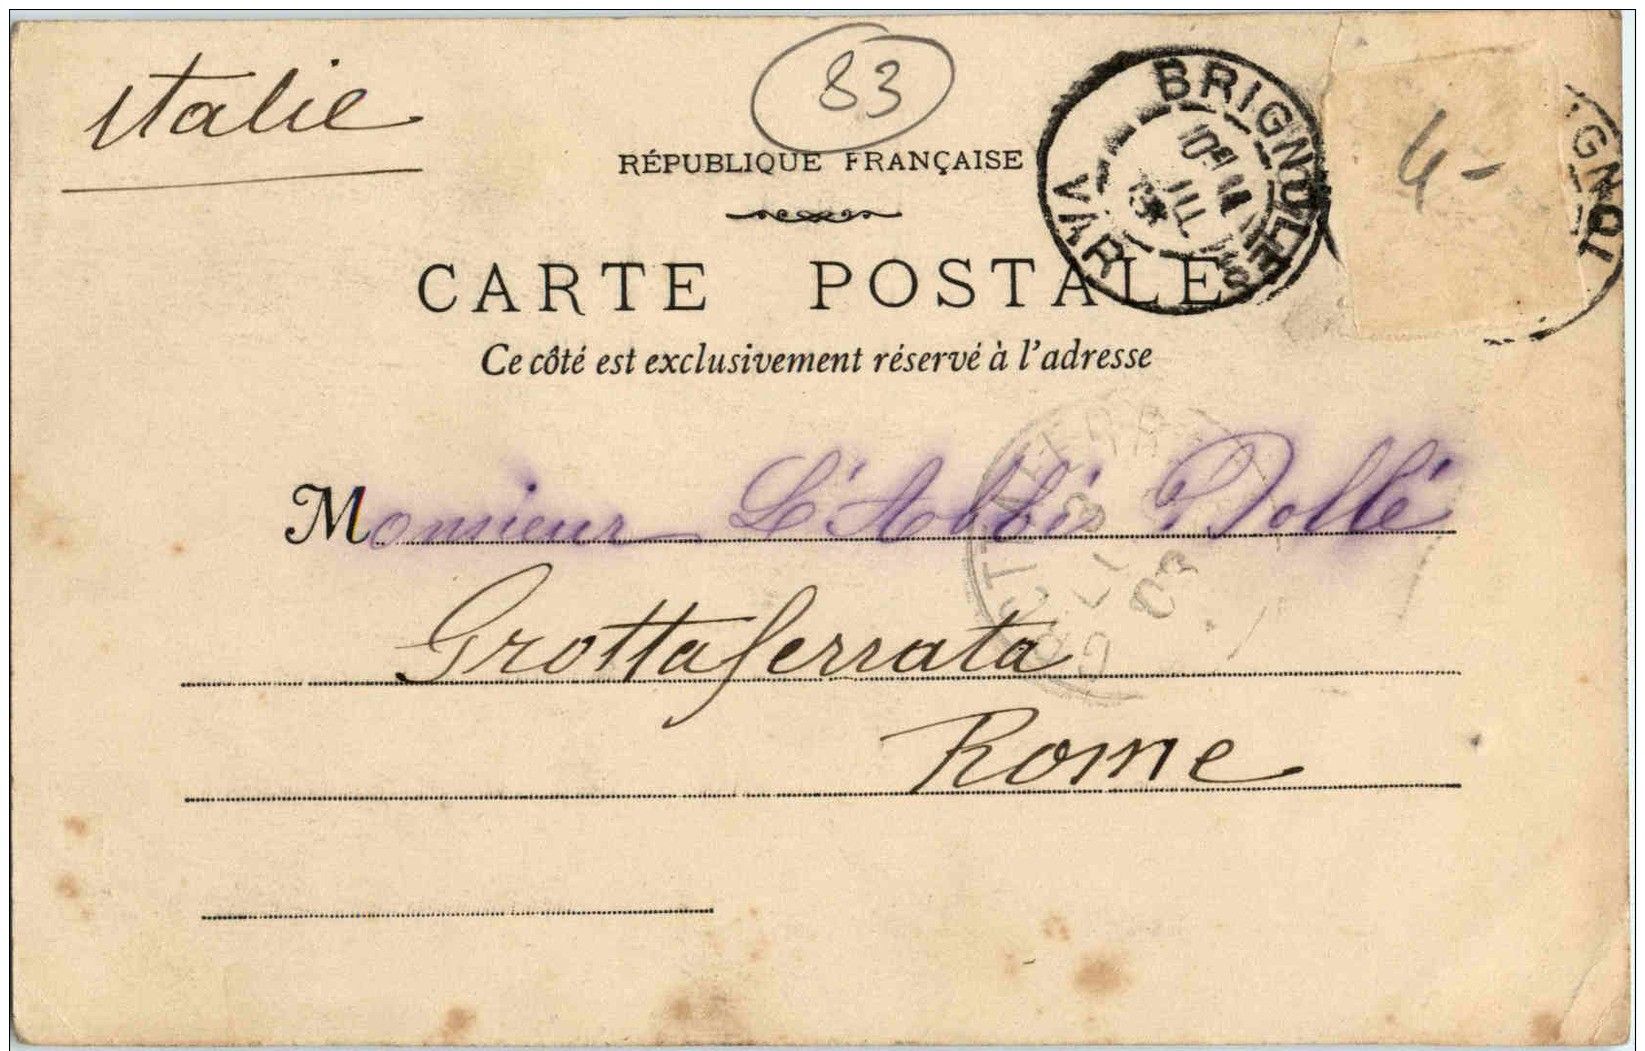 Italie
83
RÉPUBLIQUE FRANÇAISE
BRIGNOLES
VAR
4-
IGNOL
CARTE POSTALE
Ce côté est exclusivement réservé à l'adresse
Monsieur L'Abbé Dollé
Grottaferrata
03
Rome